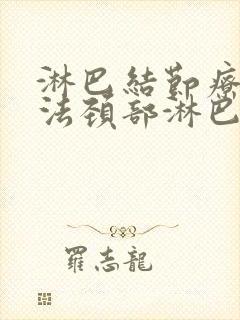 淋巴結勤療
法頚部淋巴
羅志龍